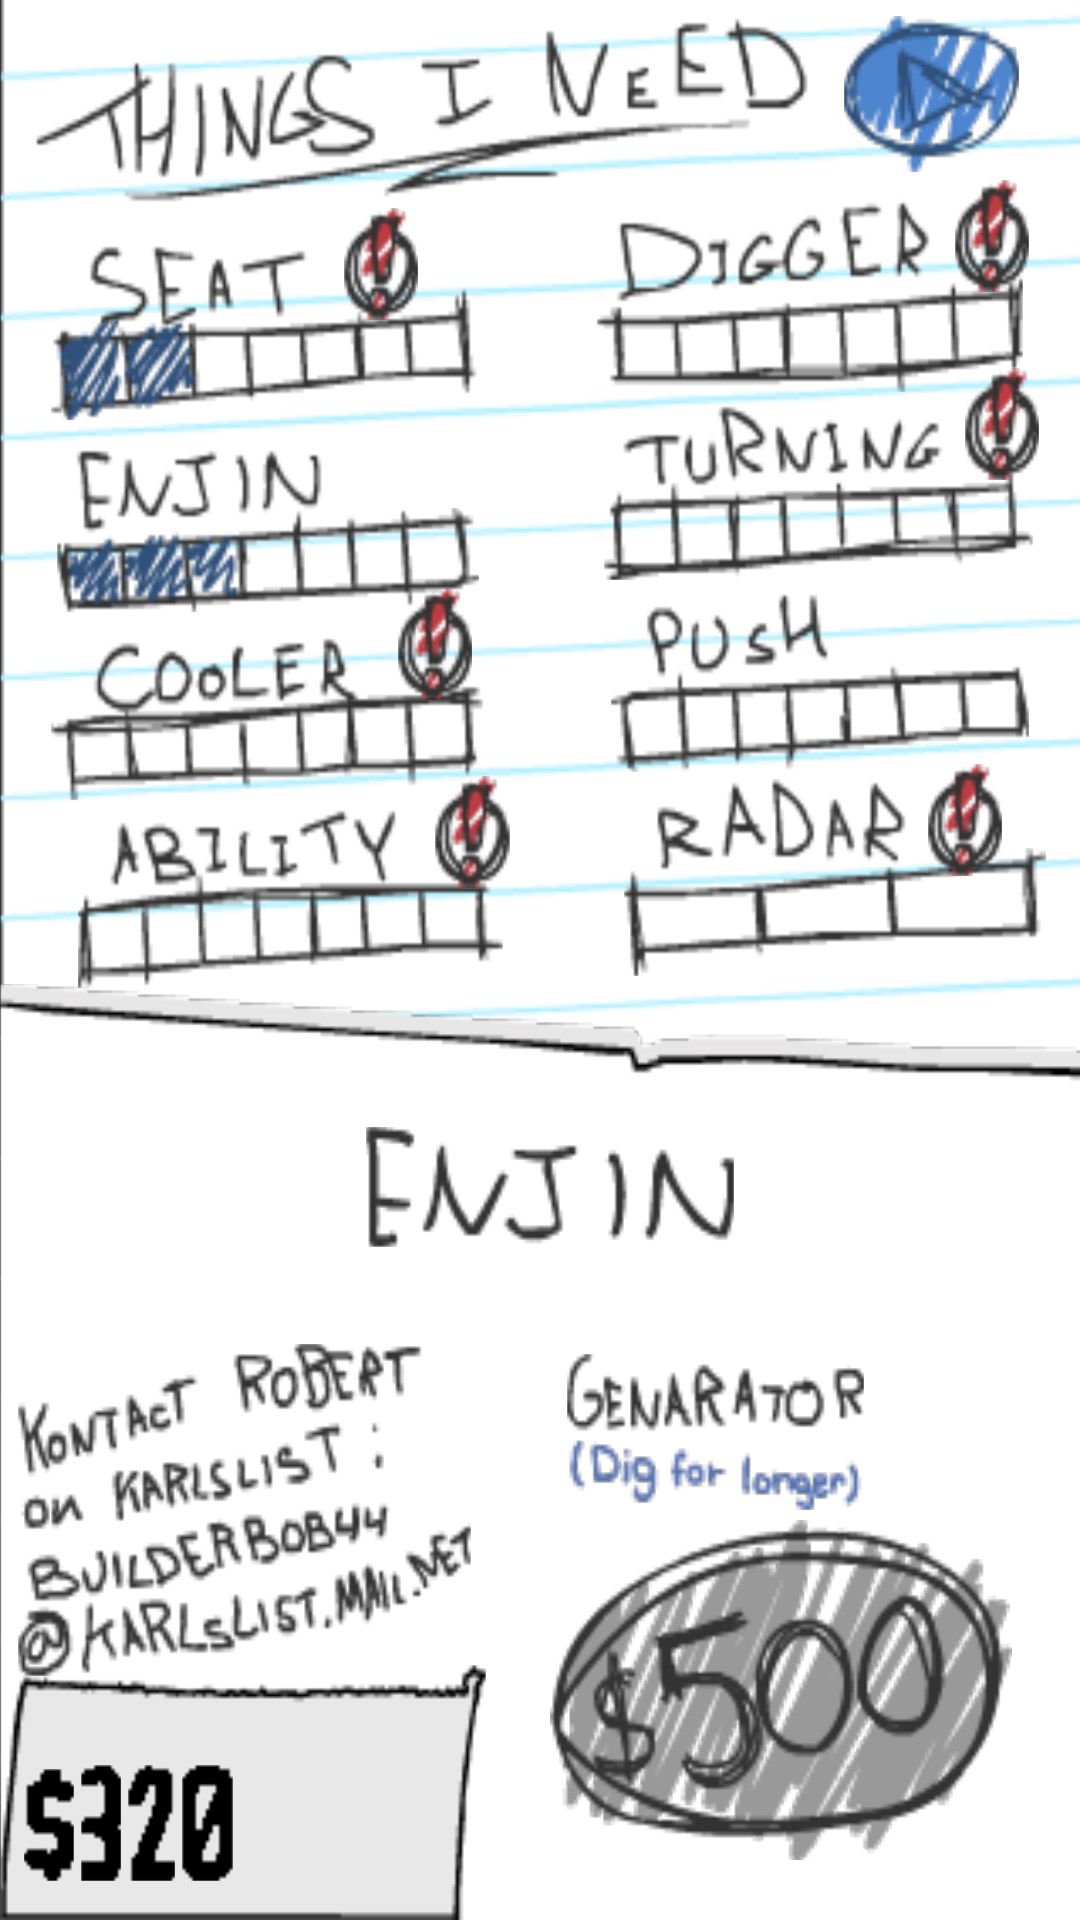 THINGS I NEED
SEAT
DIGGER
ENJIN
TURNING
COOLER
PUSH
ABILITY
RADAR
ENJIN
KONTACT ROBERT
on KARLSLIST:
BUILDERBOB44
@KARLSLIST.MAIL.NET
GENARATOR
(Dig for longer)
$500
$320